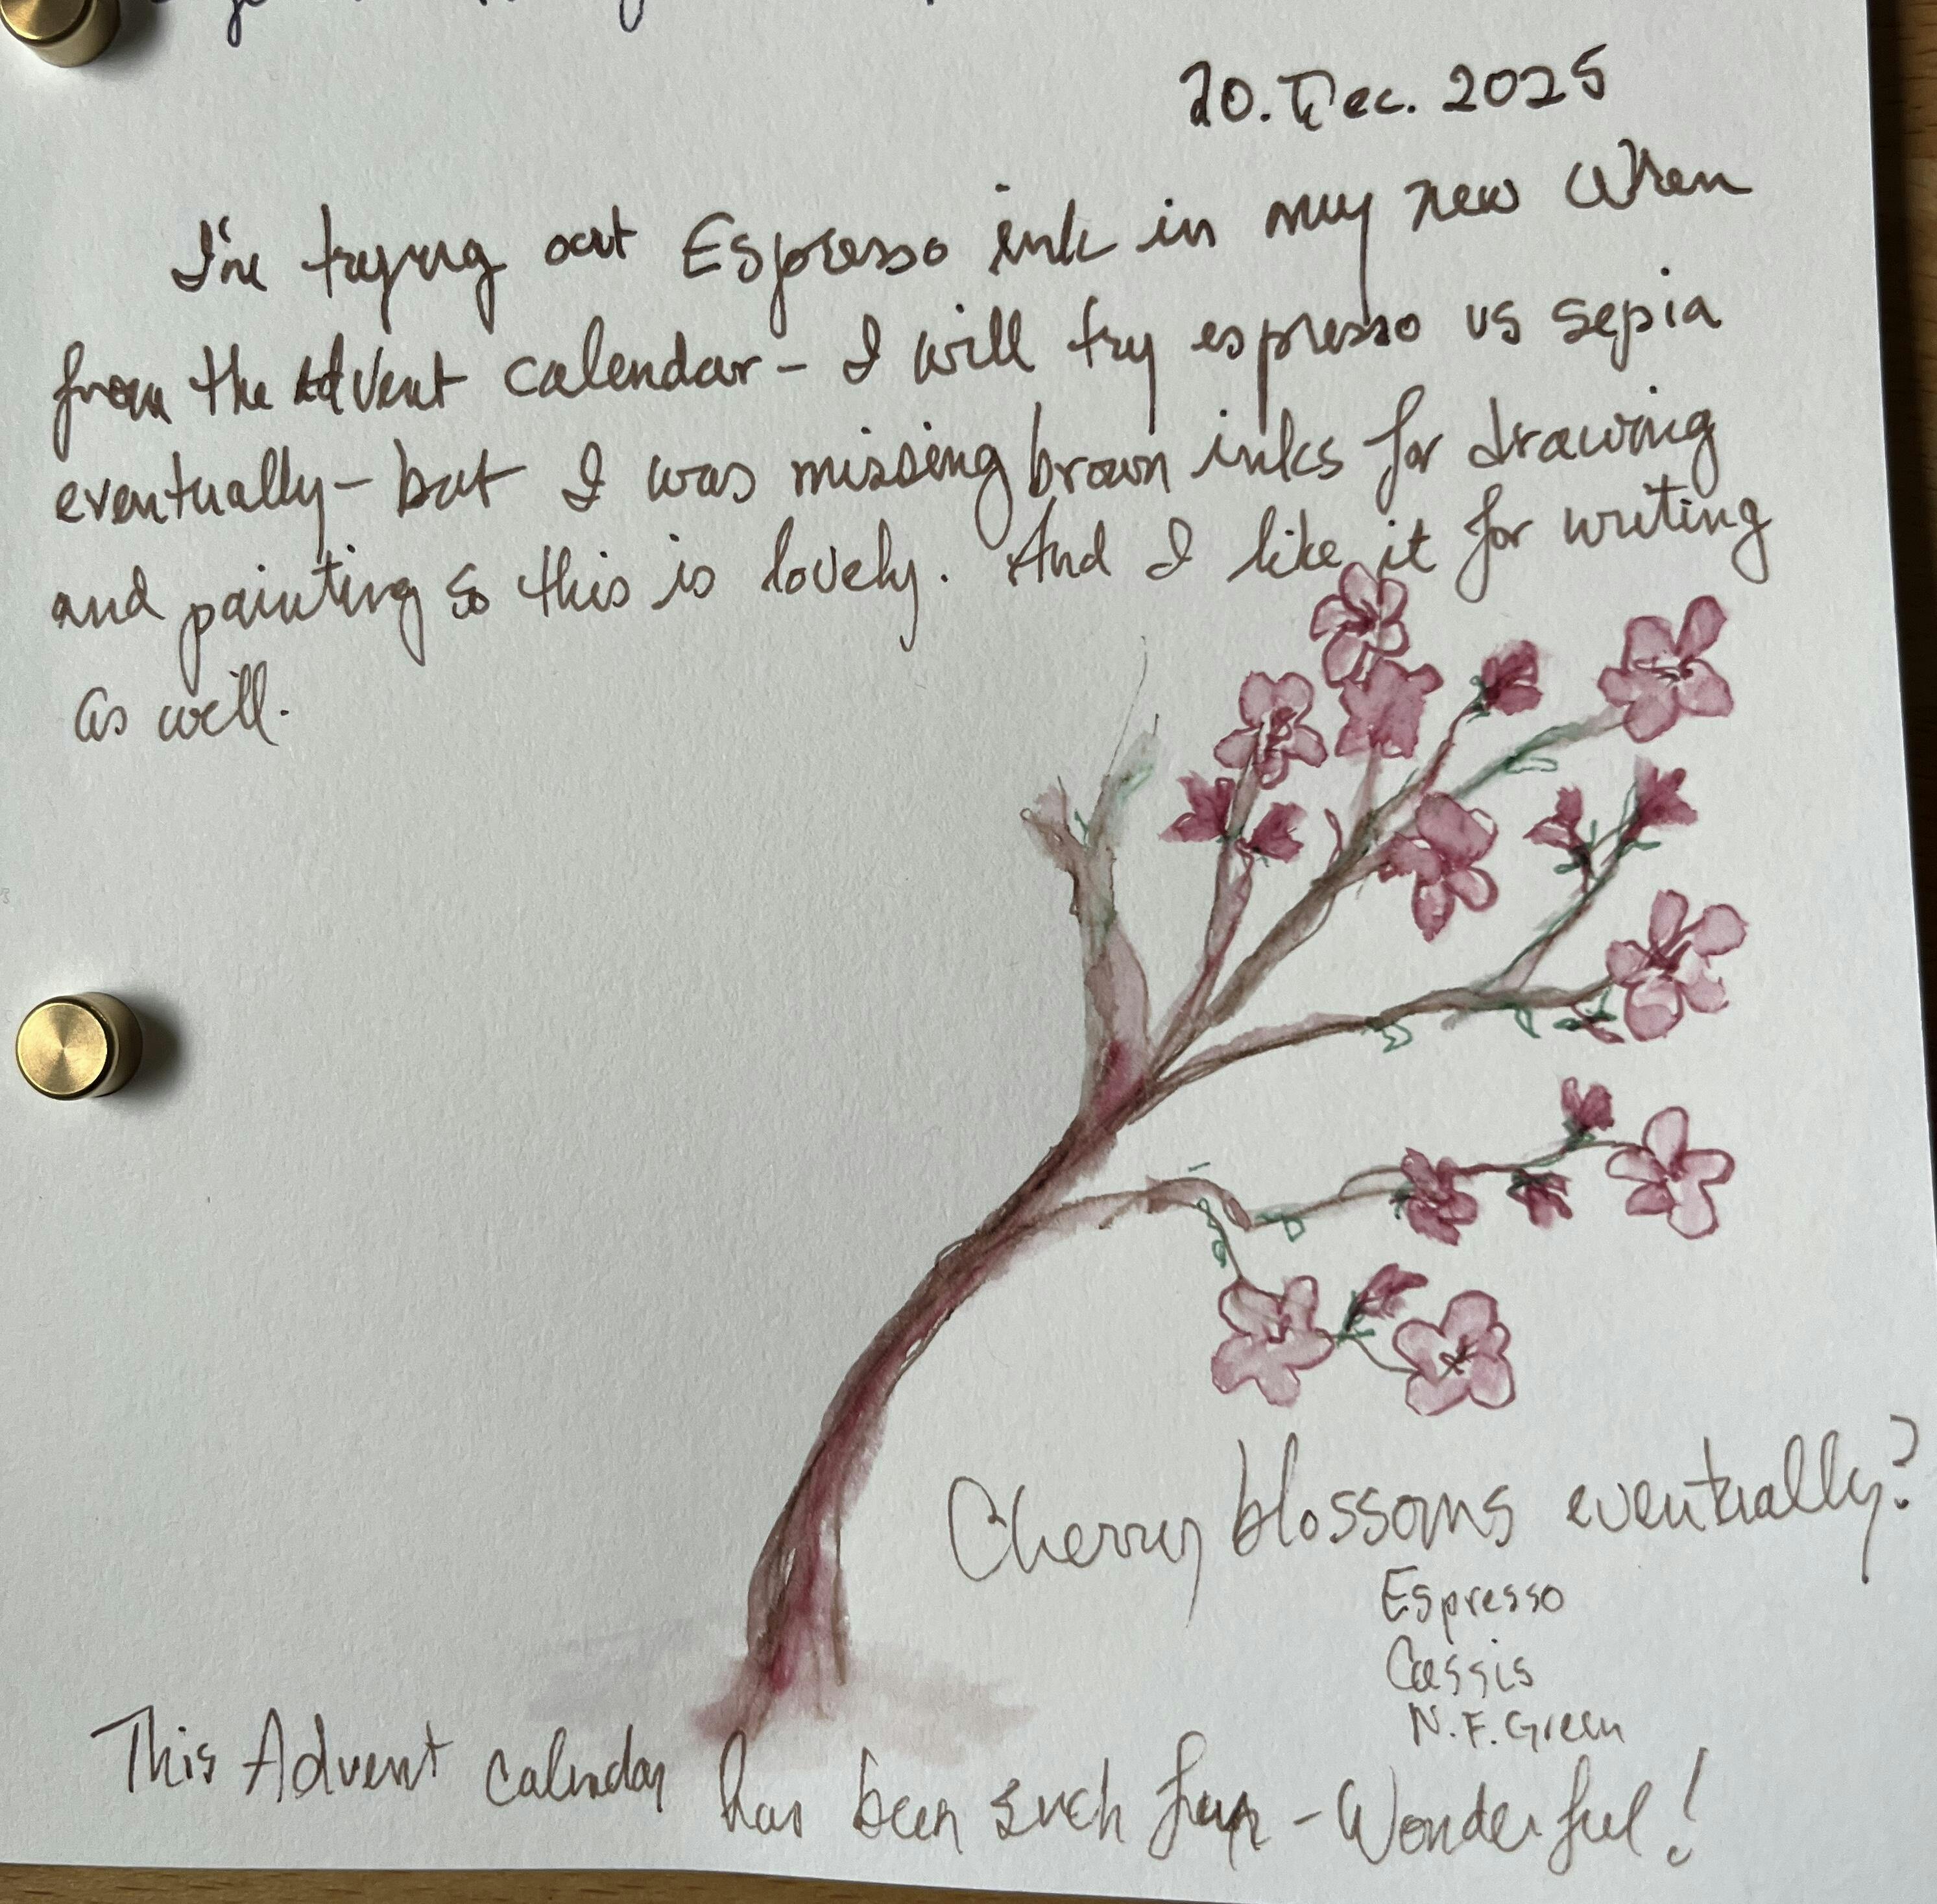 20. Dec. 2025
I'm trying out Espresso ink in my new Wren
from the Advent calendar - I will try espresso vs sepia
eventually - but I was missing brown inks for drawing
and painting so this is lovely. And I like it for writing
as well.
Cherry blossoms eventually?
Espresso
Cassis
N. F. Green
This Advent calendar has been such fun - Wonderful!